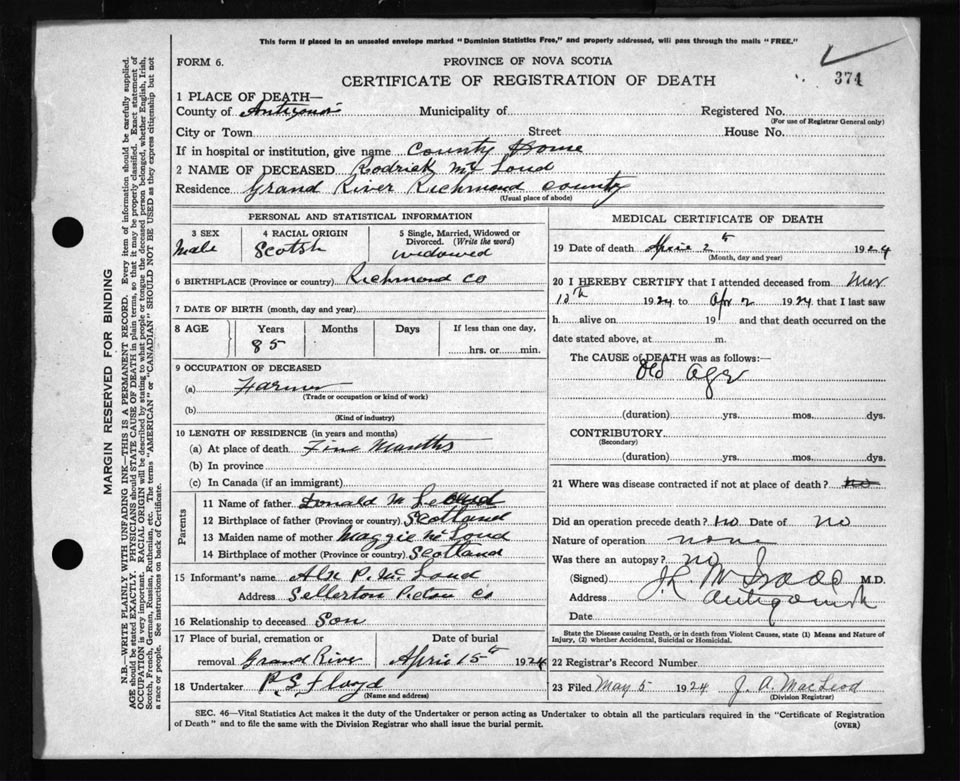 This form if placed in an unsealed envelope marked "Dominion Statistics Free," and properly addressed, will pass through the mails "FREE."
FORM 6.
PROVINCE OF NOVA SCOTIA
CERTIFICATE OF REGISTRATION OF DEATH
374
1 PLACE OF DEATH—
County of Municipality of Registered No.
(For use of Registrar General only)
City or Town Street House No.
If in hospital or institution, give name County Home
2 NAME OF DECEASED Rodrick Mc Loud
Residence Grand River Richmond County
(Usual place of abode)
PERSONAL AND STATISTICAL INFORMATION
3 SEX
Male
4 RACIAL ORIGIN
Scotsh
5 Single, Married, Widowed or Divorced. (Write the word)
widowed
6 BIRTHPLACE (Province or country) Richmond Co
7 DATE OF BIRTH (month, day and year)
8 AGE Years Months Days If less than one day,
85 hrs. or min.
9 OCCUPATION OF DECEASED
(a) Farmer
(Trade or occupation or kind of work)
(b)
(Kind of industry)
10 LENGTH OF RESIDENCE (in years and months)
(a) At place of death Months
(b) In province
(c) In Canada (if an immigrant)
Parents
11 Name of father Donald Mc
12 Birthplace of father (Province or country) Scotland
13 Maiden name of mother Maggie Mc Loud
14 Birthplace of mother (Province or country) Scotland
15 Informant's name P. Mc Loud
Address Sellerton Pictou Co
16 Relationship to deceased Son
17 Place of burial, cremation or removal Grand River
Date of burial
April 5th 1924
18 Undertaker Floyd
(Name and address)
MEDICAL CERTIFICATE OF DEATH
19 Date of death 2 1924
(Month, day and year)
20 I HEREBY CERTIFY that I attended deceased from Mar
1924 to Apr 2 1924 that I last saw
h alive on 19 and that death occurred on the
date stated above, at m.
The CAUSE of DEATH was as follows:—
Old Age
(duration) yrs. mos. dys.
CONTRIBUTORY
(Secondary)
(duration) yrs. mos. dys.
21 Where was disease contracted if not at place of death? no
Did an operation precede death? no Date of no
Nature of operation none
Was there an autopsy? no
(Signed) Mc Isaac M.D.
Address Antigonish
Date
State the Disease causing Death, or in death from Violent Causes, state (1) Means and Nature of
Injury, (2) whether Accidental, Suicidal or Homicidal.
22 Registrar's Record Number
23 Filed May 5 1924 J. A. MacLeod
(Division Registrar)
SEC. 46—Vital Statistics Act makes it the duty of the Undertaker or person acting as Undertaker to obtain all the particulars required in the "Certificate of Registration
of Death" and to file the same with the Division Registrar who shall issue the burial permit.
(OVER)
MARGIN RESERVED FOR BINDING
N.B.—WRITE PLAINLY WITH UNFADING INK—THIS IS A PERMANENT RECORD. Every item of information should be carefully supplied.
AGE should be stated EXACTLY. PHYSICIANS should STATE CAUSE OF DEATH in plain terms, so that it may be properly classified. Exact statement of
OCCUPATION is very important. RACIAL ORIGIN will be described by stating to what people or tongue the deceased person belonged, whether English, Irish,
Scotch, French, German, Russian, Ruthenian, etc. The terms "AMERICAN" or "CANADIAN" SHOULD NOT BE USED as they express citizenship but not
a race or people. See instructions on back of Certificate.